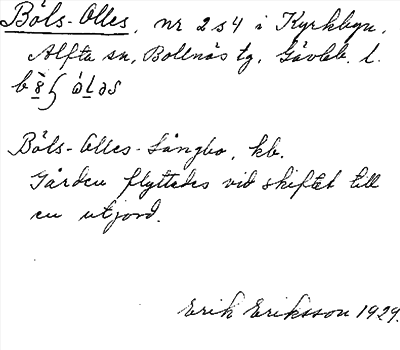 Böls-Olles, nr 2 s 4 i Kyrkbyn,
Alfta sn, Bollnäs tg, Gävleb. l.
Böls-Olles-Långbo, kb.
Gården flyttades vid skiftet till
en utjord.
Erik Eriksson 1929.